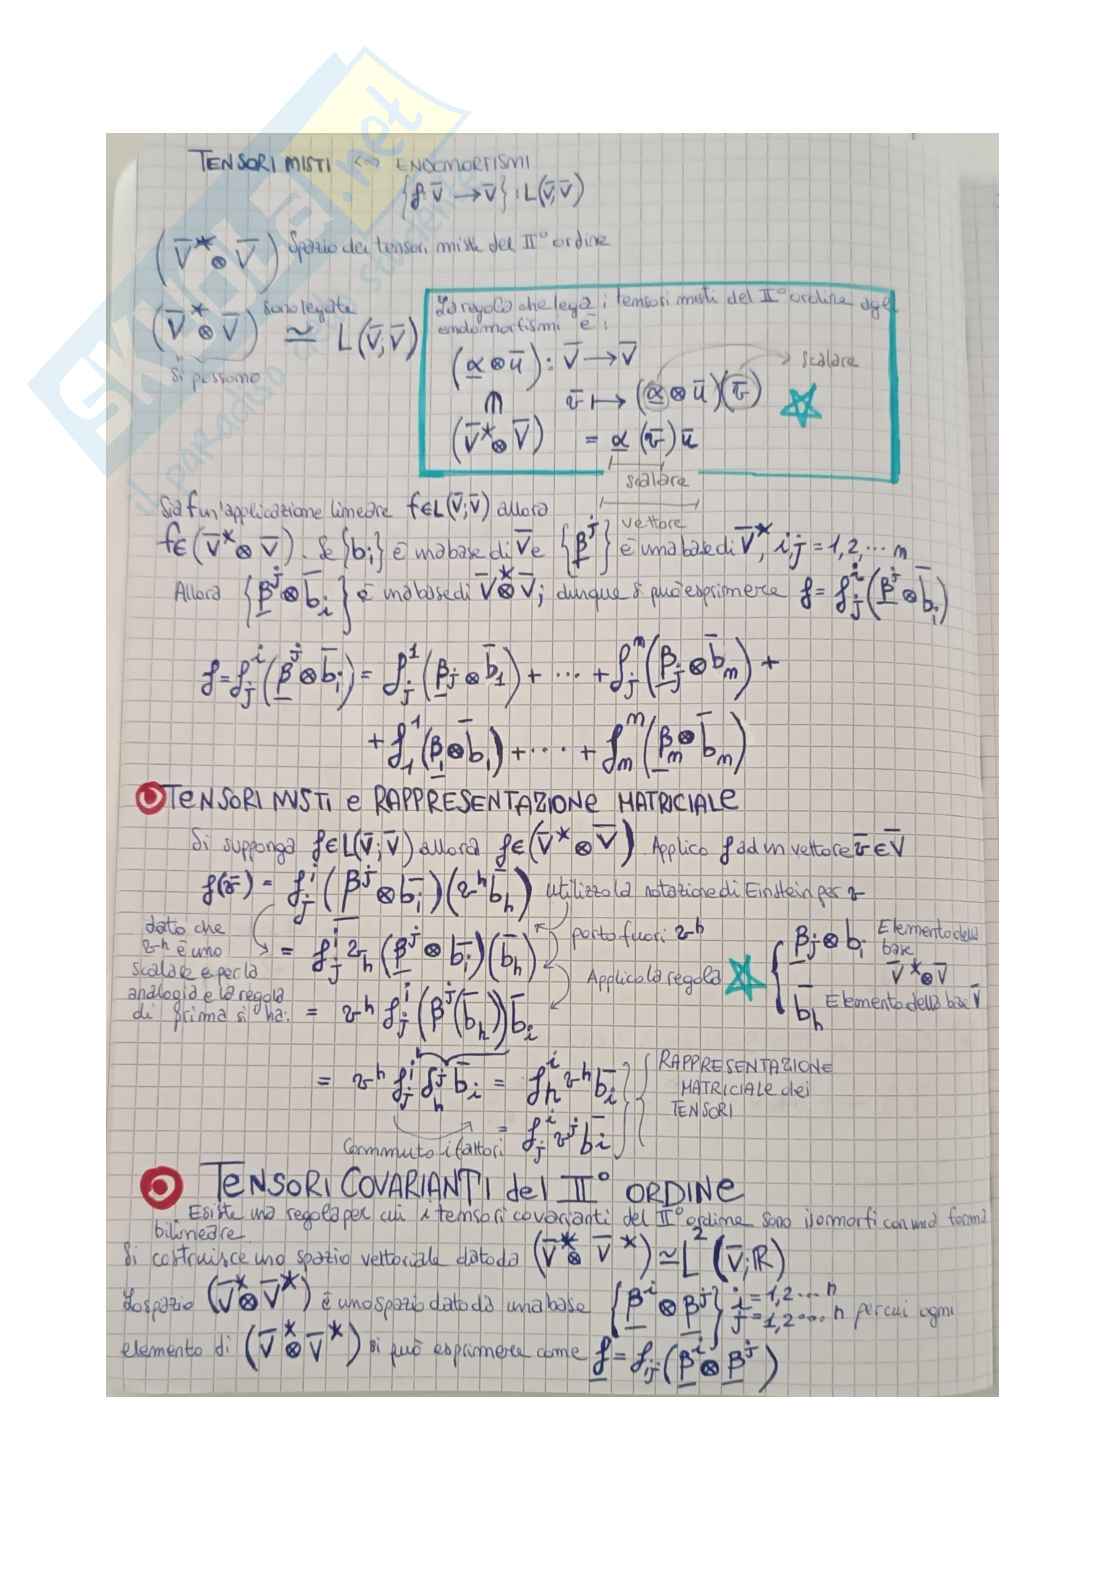 TENSORI MISTI <=> ENDOMORFISMI
{f: V̄ → V̄} : L(V̄; V̄)
(V̄* ⊗ V̄) Spazio dei tensori misti del II° ordine
(V̄* ⊗ V̄) sono legate ≃ L(V̄; V̄)
Si possono
La regola che lega i tensori misti del II° ordine agli
endomorfismi è:
(α ⊗ ū): V̄ → V̄
scalare
v̄ ↦ (α ⊗ ū)(v̄)
(V̄* ⊗ V̄) = α (v̄) ū
scalare
vettore
Sia f un'applicazione lineare f ∈ L(V̄; V̄) allora
f ∈ (V̄* ⊗ V̄). Se {b̄i} è una base di V̄ e {β^j} è una base di V̄*, i,j = 1,2,... n
Allora {β^j ⊗ b̄i} è una base di V̄* ⊗ V̄; dunque si può esprimere f = f^i_j (β^j ⊗ b̄i)
f = f^i_j (β^j ⊗ b̄i) = f^1_j (βj ⊗ b̄1) + ... + f^n_j (βj ⊗ b̄n) +
+ f^1_1 (β1 ⊗ b̄1) + ... + f^n_n (βn ⊗ b̄n)
TENSORI MISTI e RAPPRESENTAZIONE MATRICIALE
Si supponga f ∈ L(V̄; V̄) allora f ∈ (V̄* ⊗ V̄) Applico f ad un vettore v̄ ∈ V̄
f(v̄) = f^i_j (β^j ⊗ b̄i)(v^h b̄h) utilizzo la notazione di Einstein per v
dato che
v^h è uno
scalare e per la
analogia e la regola
di prima si ha:
= f^i_j v_h (β^j ⊗ b̄i)(b̄h)
porto fuori v^h
Applico la regola
βj ⊗ bi Elemento della
base
V̄* ⊗ V̄
b̄h Elemento della base V̄
= v^h f^i_j (β^j (b̄h)) b̄i
= v^h f^i_j δ^j_h b̄i = f^i_h v^h b̄i
= f^i_j v^j b̄i
Commuto i fattori
RAPPRESENTAZIONE
MATRICIALE dei
TENSORI
TENSORI COVARIANTI del II° ORDINE
Esiste una regola per cui i tensori covarianti del II° ordine sono isomorfi con una forma
bilineare
Si costruisce uno spazio vettoriale dato da (V̄* ⊗ V̄*) ≃ L² (V̄; ℝ)
Lo spazio (V̄* ⊗ V̄*) è uno spazio dato da una base {β^i ⊗ β^j} i = 1,2... n j = 1,2... n per cui ogni
elemento di (V̄* ⊗ V̄*) si può esprimere come f = f_ij (β^i ⊗ β^j)
SKUOLA.net
il paradiso